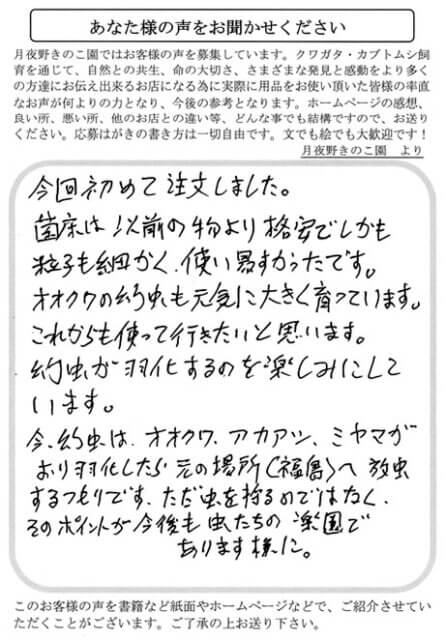 あなた様の声をお聞かせください
月夜野きのこ園ではお客様の声を募集しています。クワガタ・カブトムシ飼
育を通じて、自然との共生、命の大切さ、さまざまな発見と感動をより多く
の方達にお伝え出来るお店になる為に実際に用品をお使い頂いた皆様の率直
なお声が何よりの力となり、今後の参考となります。ホームページの感想、
良い所、悪い所、他のお店との違い等、どんな事でも結構ですので、お送り
ください。応募はがきの書き方は一切自由です。文でも絵でも大歓迎です！
月夜野きのこ園　より
今回初めて注文しました。
菌床は以前の物より格安でしかも
粒子も細かく、使い易すかったです。
オオクワの幼虫も元気に大きく育っています。
これからも使って行きたいと思います。
幼虫が羽化するのを楽しみにして
います。
今、幼虫は、オオクワ、アカアシ、ミヤマが
おり羽化したら元の場所（福島）へ放虫
するつもりです、ただ虫を狩るのではなく、
そのポイントが今後も虫たちの楽園で
あります様に。
このお客様の声を書籍など紙面やホームページなどで、ご紹介させてい
ただくことがございます。ご了承の上お送り下さい。